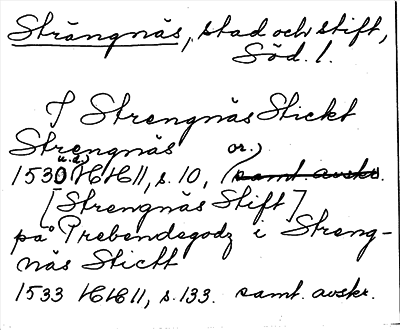 Strängnäs, stad och stift,
Söd. l.
I Strengnäs Stickt
Strengnäs or.)
1530 u.d. HH 11, s. 10, samt avskr.
[Strengnäs Stift]
på Prebendegodz i Streng-
näs Stictt
1533 HH 11, s. 133. samt. avskr.